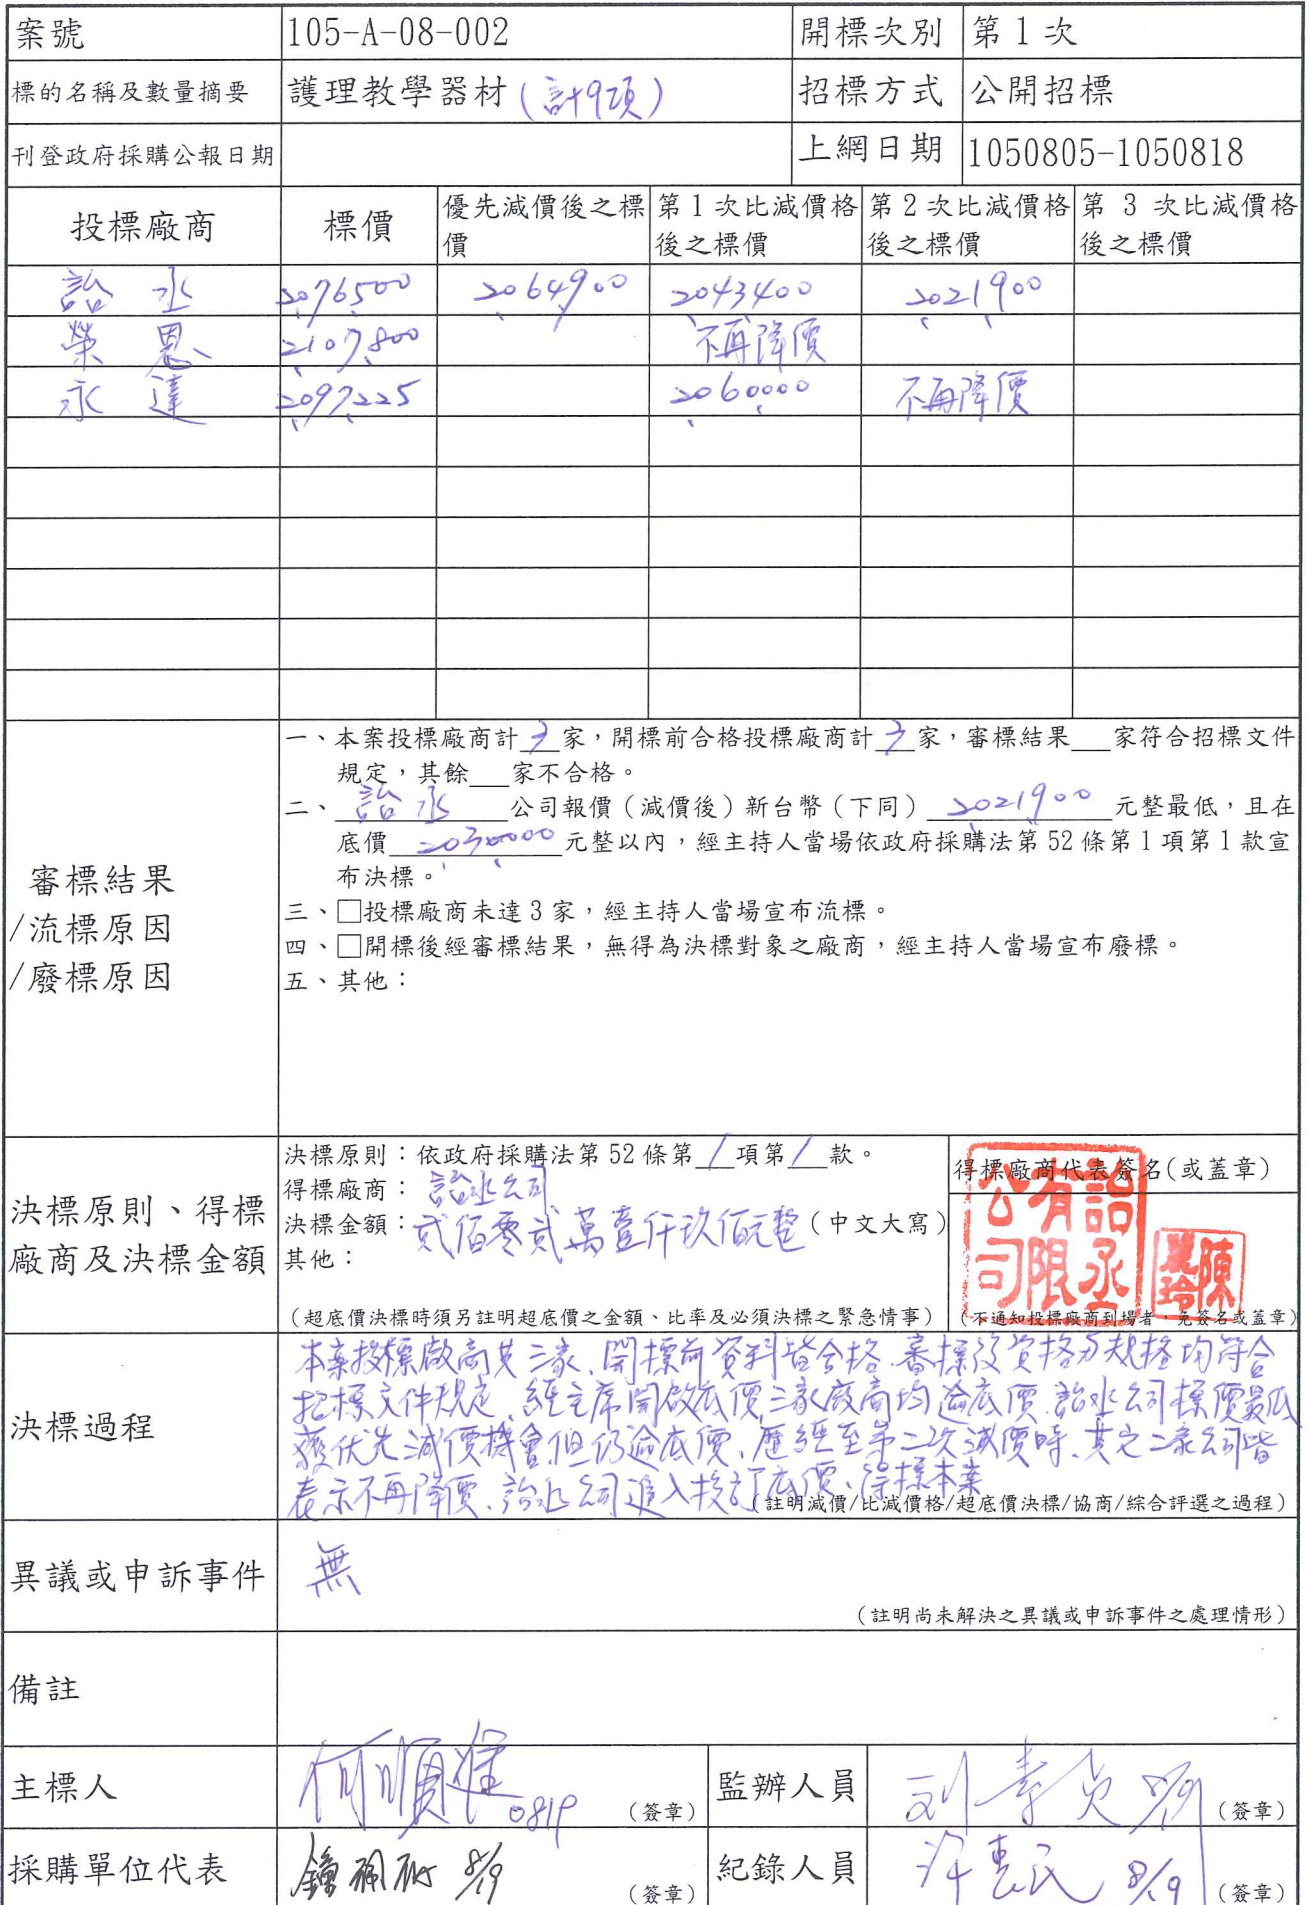 案號 105-A-08-002 開標次別 第1次
標的名稱及數量摘要 護理教學器材(計9項) 招標方式 公開招標
刊登政府採購公報日期 上網日期 1050805-1050818
投標廠商 標價 優先減價後之標價 第1次比減價格後之標價 第2次比減價格後之標價 第3次比減價格後之標價
詒丞 2076500 2064900 2043400 2021900
榮恩 2107800 不再降價
永達 2097225 2060000 不再降價
審標結果
/流標原因
/廢標原因
一、本案投標廠商計3家，開標前合格投標廠商計3家，審標結果___家符合招標文件
規定，其餘___家不合格。
二、詒丞公司報價（減價後）新台幣（下同）2021900元整最低，且在
底價2030000元整以內，經主持人當場依政府採購法第52條第1項第1款宣
布決標。
三、□投標廠商未達3家，經主持人當場宣布流標。
四、□開標後經審標結果，無得為決標對象之廠商，經主持人當場宣布廢標。
五、其他：
決標原則、得標
廠商及決標金額
決標原則：依政府採購法第52條第1項第1款。
得標廠商：詒丞公司
決標金額：貳佰零貳萬壹仟玖佰元整(中文大寫)
其他：
（超底價決標時須另註明超底價之金額、比率及必須決標之緊急情事）
得標廠商代表簽名(或蓋章)
詒丞有限公司
(不通知投標廠商到場者 免簽名或蓋章)
決標過程
本案投標廠商共三家、開標前資料皆合格、審標後資格及規格均符合
招標文件規定、經主席開啟底價三家廠商均逾底價、詒丞公司標價最低
獲優先減價機會但仍逾底價、歷經至第二次減價時、其它二家公司皆
表示不再降價、詒丞公司進入核訂底價、得標本案
（註明減價/比減價格/超底價決標/協商/綜合評選之過程）
異議或申訴事件 無
（註明尚未解決之異議或申訴事件之處理情形）
備註
主標人 何順進 0819 （簽章） 監辦人員 （簽章）
採購單位代表 8/19 （簽章） 紀錄人員 許惠民 8/19 （簽章）